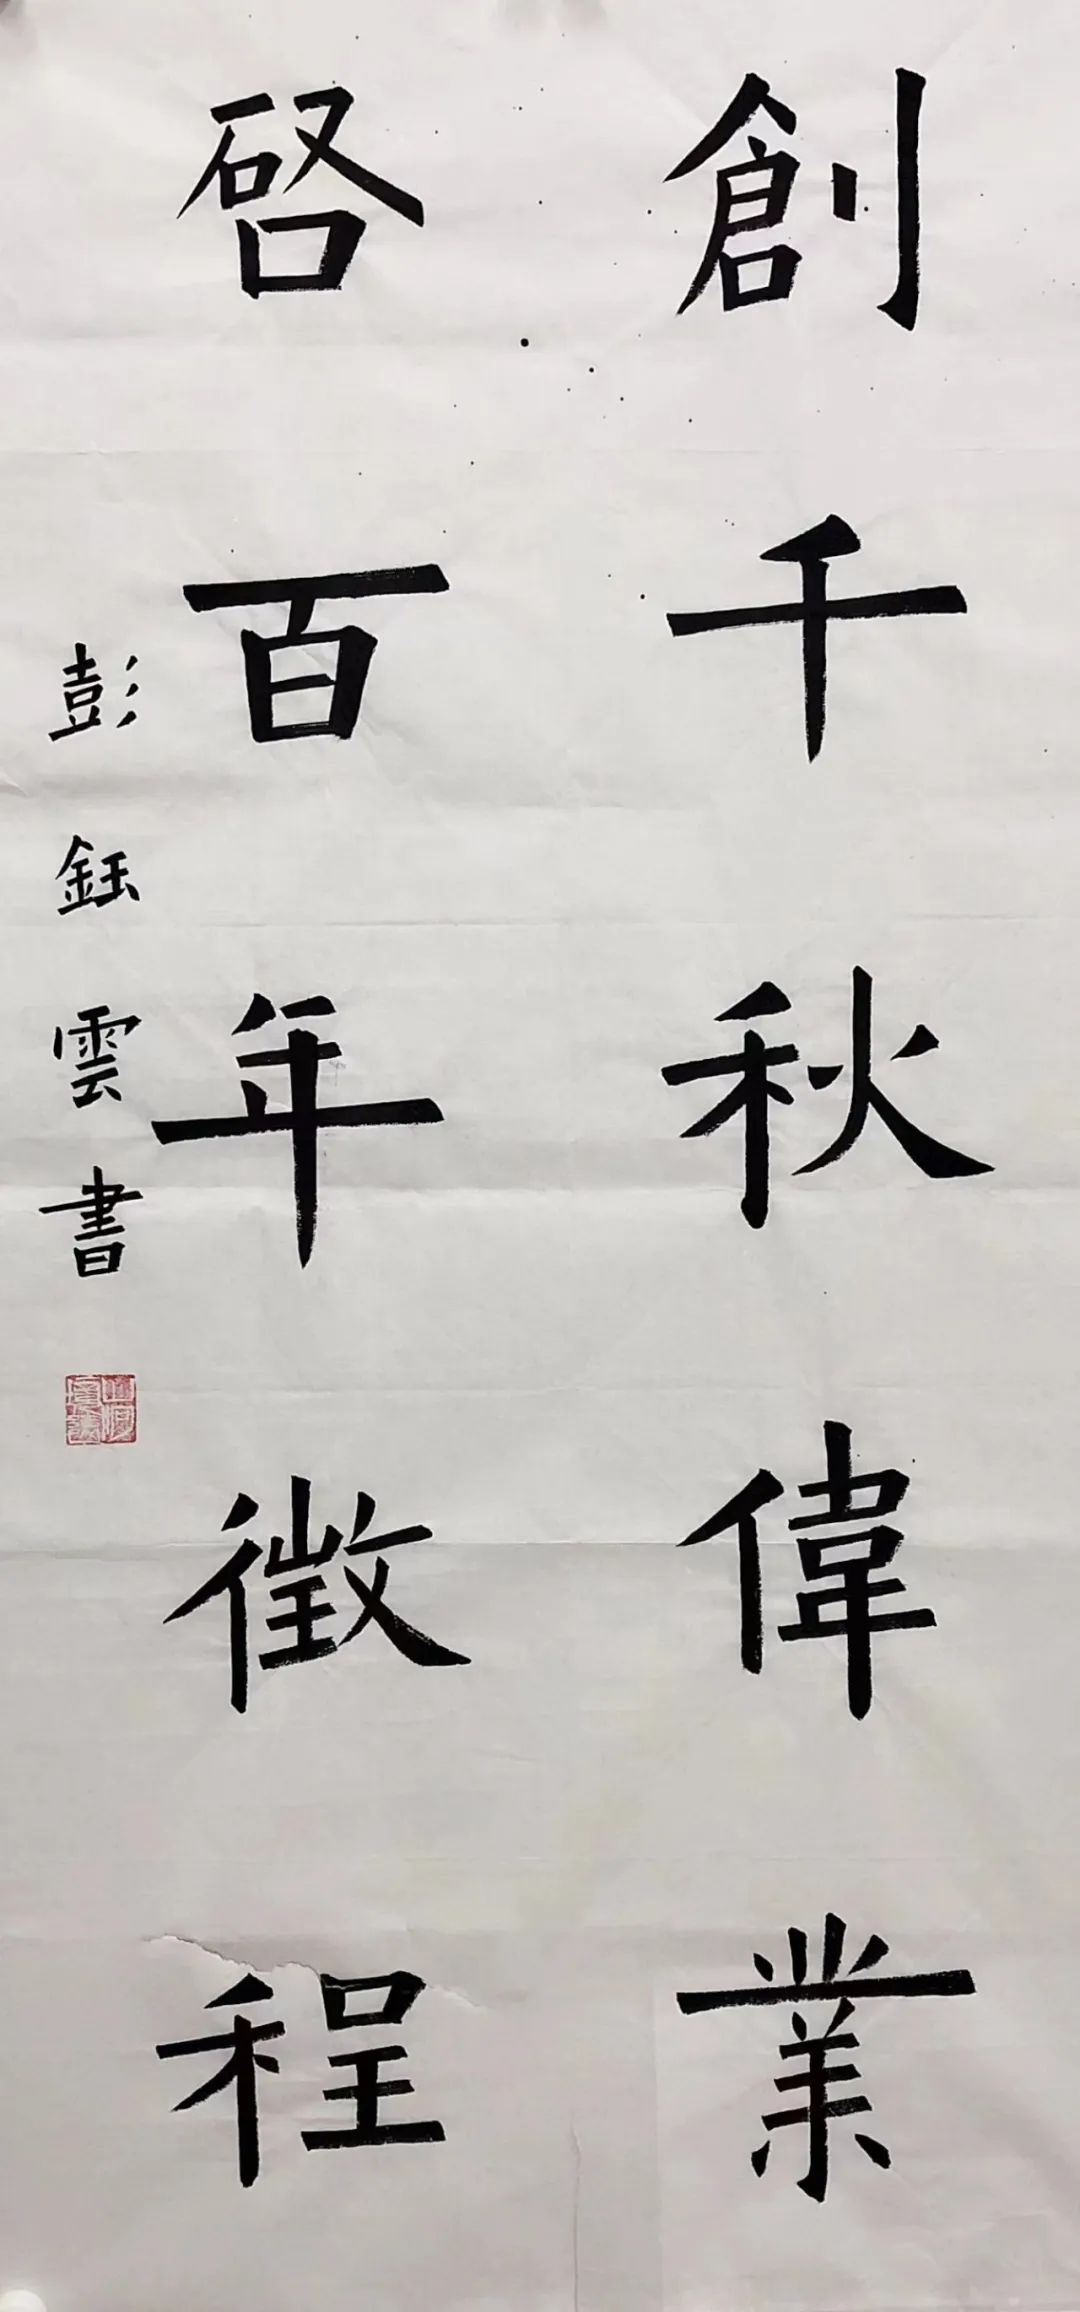 創千秋偉業
啓百年徵程
彭鈺雲書